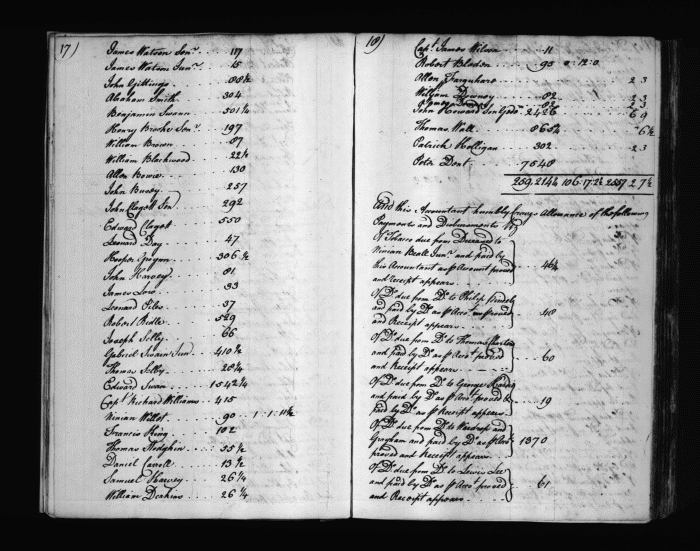 17)
James Watson Senr. 117
James Watson Junr. 15
John Gittings 88½
Abraham Smith 304
Benjamin Swann 501¼
Henry Brooke Senr. 197
William Brown 87
William Blackwood 22½
Allen Bowie 130
John Busey 257
John Clagett Sen 292
Edward Clagett 550
Leonard Day 47
Hooper Gregon 306½
John Harvey 81
James Low 33
Leonard Piles 37
Robert Ridle 529
Joseph Selby 66
Gabriel Swain Jund 410½
Thomas Selby 28¼
Edward Swan 1542¼
Capt. Richard Williams 415
Ninian Willet 90 1:1:11½
Francis King 102
Thomas Hodgkin 35½
Daniel Carroll 13½
Samuel Harvey 26¼
William Deakins 26¼
18)
Capt. James Wilson 11
Robert Bladen 95 0:12:0
Allen Farquhard 2 3
William Downey 82 2 3
82 2 3
John Howard Son 2426 6 9
Thomas Wall 865¼ 6½
Patrick Holligan 302 2 3
Peter Dent 7548
259,214½ 106:17:2½ 2557 2 7½
And this Accountant humbly Craves Allowance of the following
Payments and Disbursements Viz
Of Tobacco due from Deceased to
Ninian Beall Junr. and paid by
this Accountant as Account proved
and receipt appears 46¼
Of Do. due from Do. to Philip
and paid by Do. as Accot. proved
and Receipt appears 48
Of Do. due from Do. to Thomas
and paid by Do. as Accot. proved
and Receipt appears 60
Of Do. due from Do. to George
and paid by Do. as Accot. proved &
paid by Do. as Receipt appears 19
Of Do. due from Do. to Wardrop and
Graham and paid by Do. as Accot.
proved and Receipt appears 1370
Of Do. due from Do. to Lewis Lee
and paid by Do. as Accot. proved
and Receipt appears 61